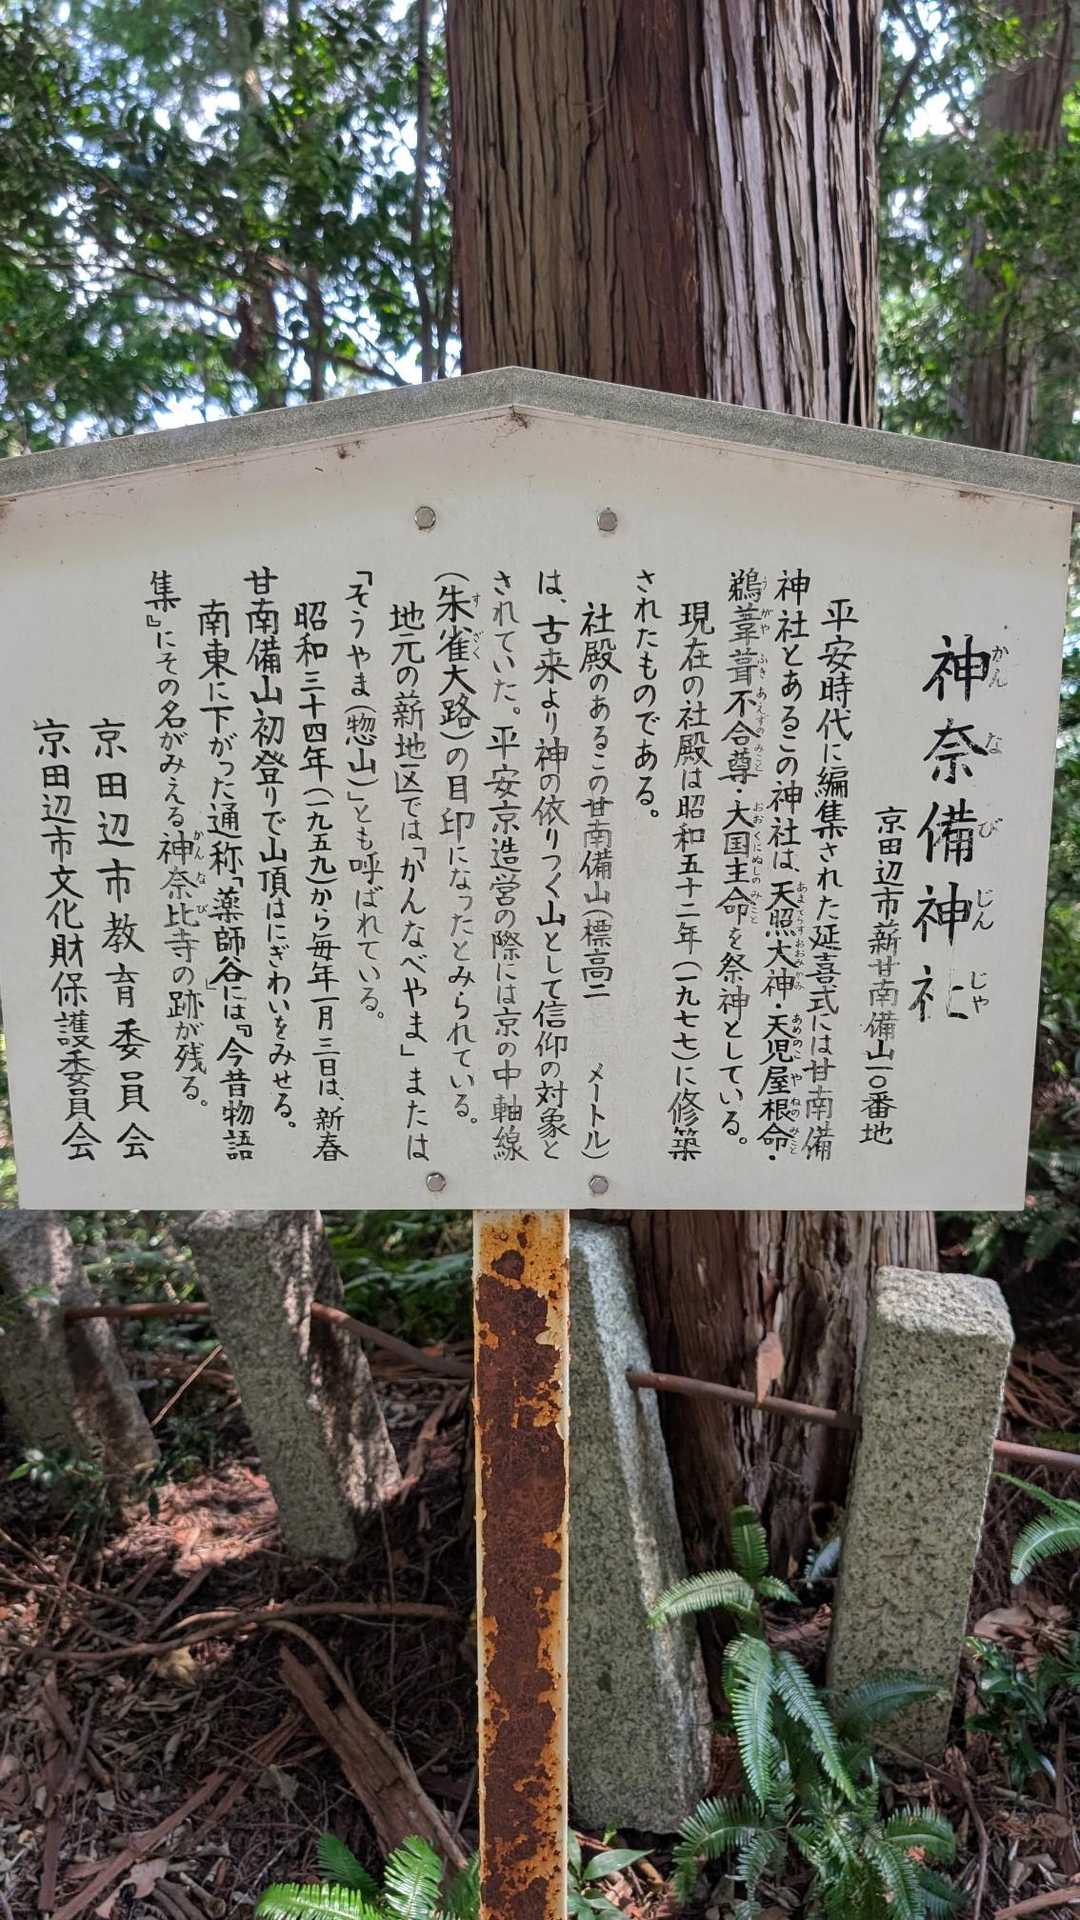 神奈備神社
かんなびじんじゃ
京田辺市薪甘南備山一〇番地
平安時代に編集された延喜式には甘南備
神社とあるこの神社は、天照大神・天児屋根命・
あまてらすおおみかみ あめのこやねのみこと
鵜葦葺不合尊・大国主命を祭神としている。
うがやふきあえずのみこと おおくにぬしのみこと
現在の社殿は昭和五十二年(一九七七)に修築
されたものである。
社殿のあるこの甘南備山(標高二 メートル)
は、古来より神の依りつく山として信仰の対象と
されていた。平安京造営の際には京の中軸線
(朱雀大路)の目印になったとみられている。
すざく
地元の薪地区では「かんなべやま」または
「そうやま(惣山)」とも呼ばれている。
昭和三十四年(一九五九)から毎年一月三日は、新春
甘南備山初登りで山頂はにぎわいをみせる。
南東に下がった通称「薬師谷」には『今昔物語
集』にその名がみえる神奈比寺の跡が残る。
かんなび
京田辺市教育委員会
京田辺市文化財保護委員会